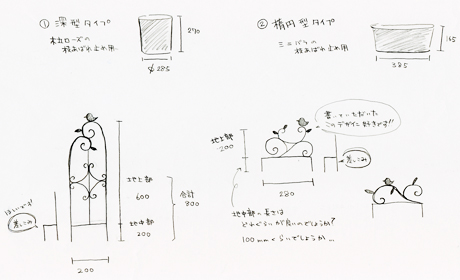 ① 深型タイプ
木立ローズの
枝あばれ止め用
270
φ285
② 楕円型タイプ
ミニバラの
枝あばれ止め用
165
385
書いていただいた
このデザイン好きです!!
地上部
200
差しこみ
280
地上部
600
合計
800
地中部
200
差しこみ
200
地中部の長さは
どれぐらいが良いのでしょうか?
100mmぐらいでしょうか…